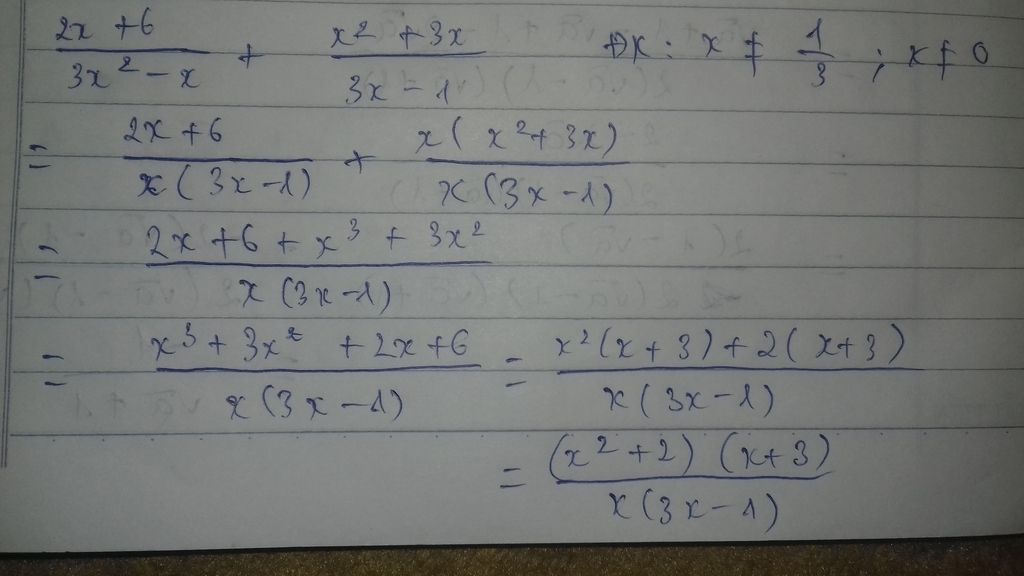 \frac{2x+6}{3x^2-x} + \frac{x^2+3x}{3x-1} ĐK: x ≠ \frac{1}{3}; x ≠ 0
= \frac{2x+6}{x(3x-1)} + \frac{x(x^2+3x)}{x(3x-1)}
= \frac{2x+6+x^3+3x^2}{x(3x-1)}
= \frac{x^3+3x^2+2x+6}{x(3x-1)} = \frac{x^2(x+3)+2(x+3)}{x(3x-1)}
= \frac{(x^2+2)(x+3)}{x(3x-1)}